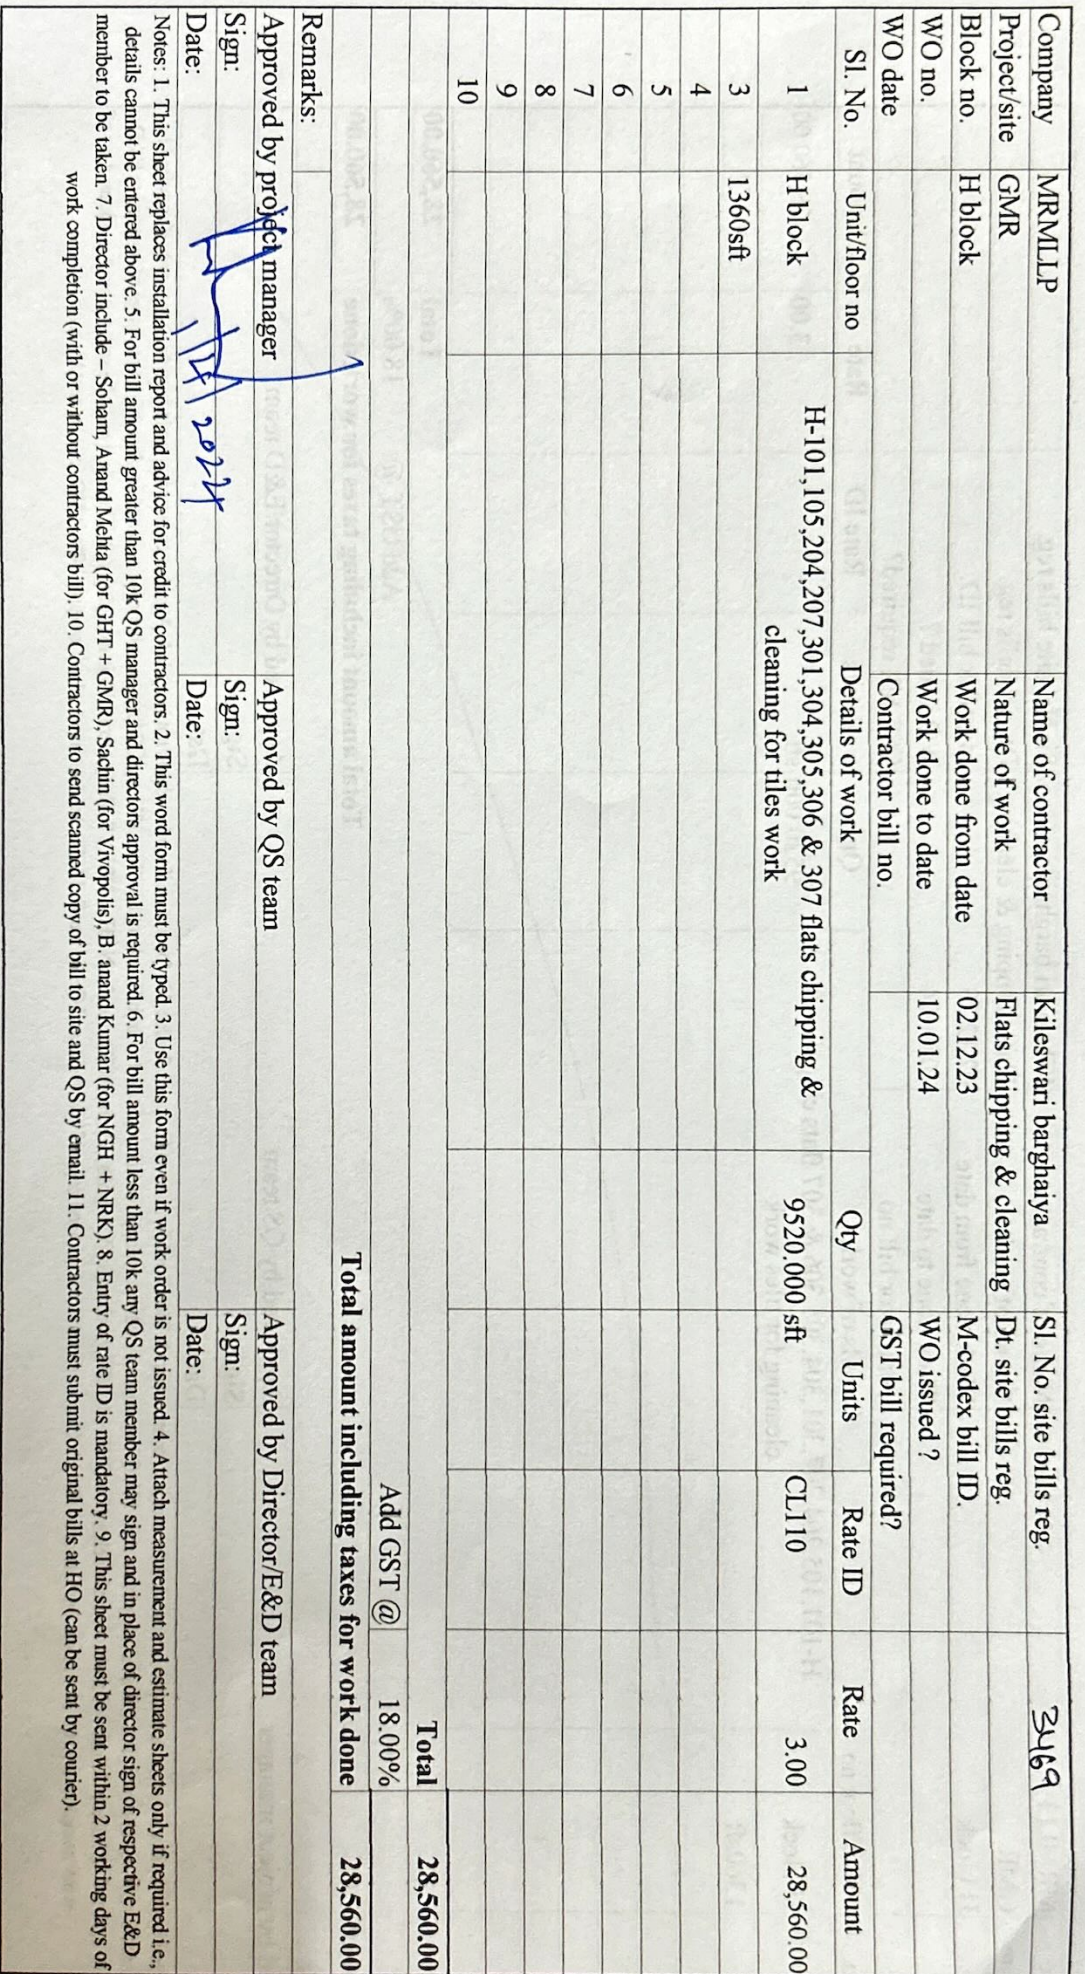 Company MRMLLP Name of contractor Kileswari barghaiya Sl. No. site bills reg. 3469
Project/site GMR Nature of work Flats chipping & cleaning Dt. site bills reg.
Block no. H block Work done from date 02.12.23 M-codex bill ID.
WO no. Work done to date 10.01.24 WO issued ?
WO date Contractor bill no. GST bill required?
Sl. No. Unit/floor no Details of work Qty Units Rate ID Rate Amount
1 H block H-101,105,204,207,301,304,305,306 & 307 flats chipping & 9520.000 sft CL110 3.00 28,560.00
cleaning for tiles work
3 1360sft
4
5
6
7
8
9
10
Total 28,560.00
Add GST @ 18.00%
Total amount including taxes for work done 28,560.00
Remarks:
Approved by project manager Approved by QS team Approved by Director/E&D team
Sign: Sign: Sign:
Date: Date: Date:
Notes: 1. This sheet replaces installation report and advice for credit to contractors. 2. This word form must be typed. 3. Use this form even if work order is not issued. 4. Attach measurement and estimate sheets only if required i.e.,
details cannot be entered above. 5. For bill amount greater than 10k QS manager and directors approval is required. 6. For bill amount less than 10k any QS team member may sign and in place of director sign of respective E&D
member to be taken. 7. Director include – Soham, Anand Mehta (for GHT + GMR), Sachin (for Vivopolis), B. anand Kumar (for NGH + NRK). 8. Entry of rate ID is mandatory. 9. This sheet must be sent within 2 working days of
work completion (with or without contractors bill). 10. Contractors to send scanned copy of bill to site and QS by email. 11. Contractors must submit original bills at HO (can be sent by courier).